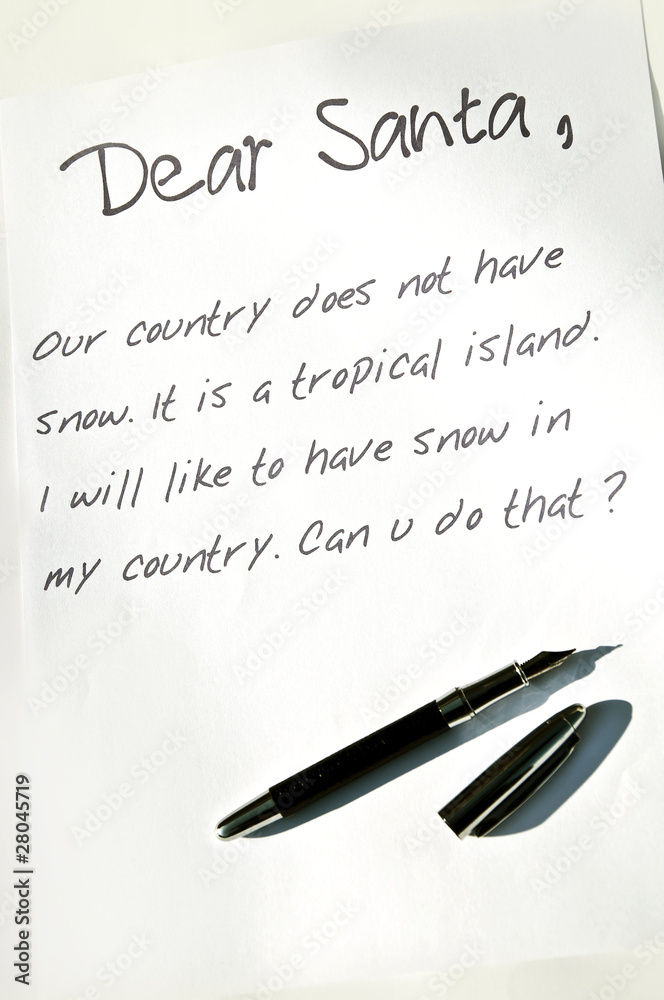 Dear Santa,
Our country does not have
snow. It is a tropical island.
I will like to have snow in
my country. Can u do that?
Adobe Stock | #28045719